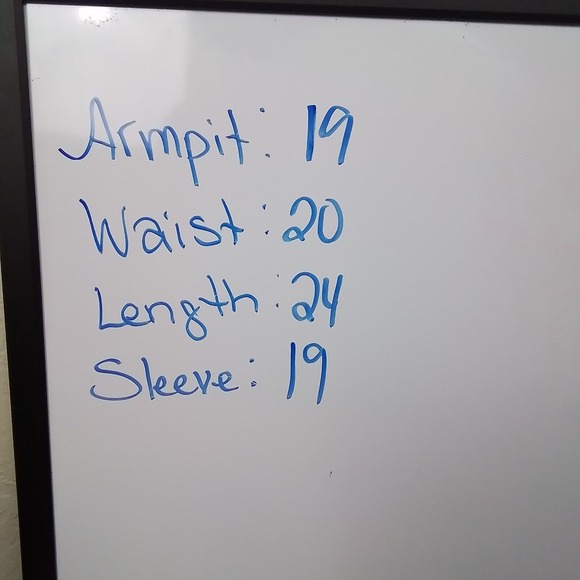 Armpit: 19
Waist: 20
Length: 24
Sleeve: 19